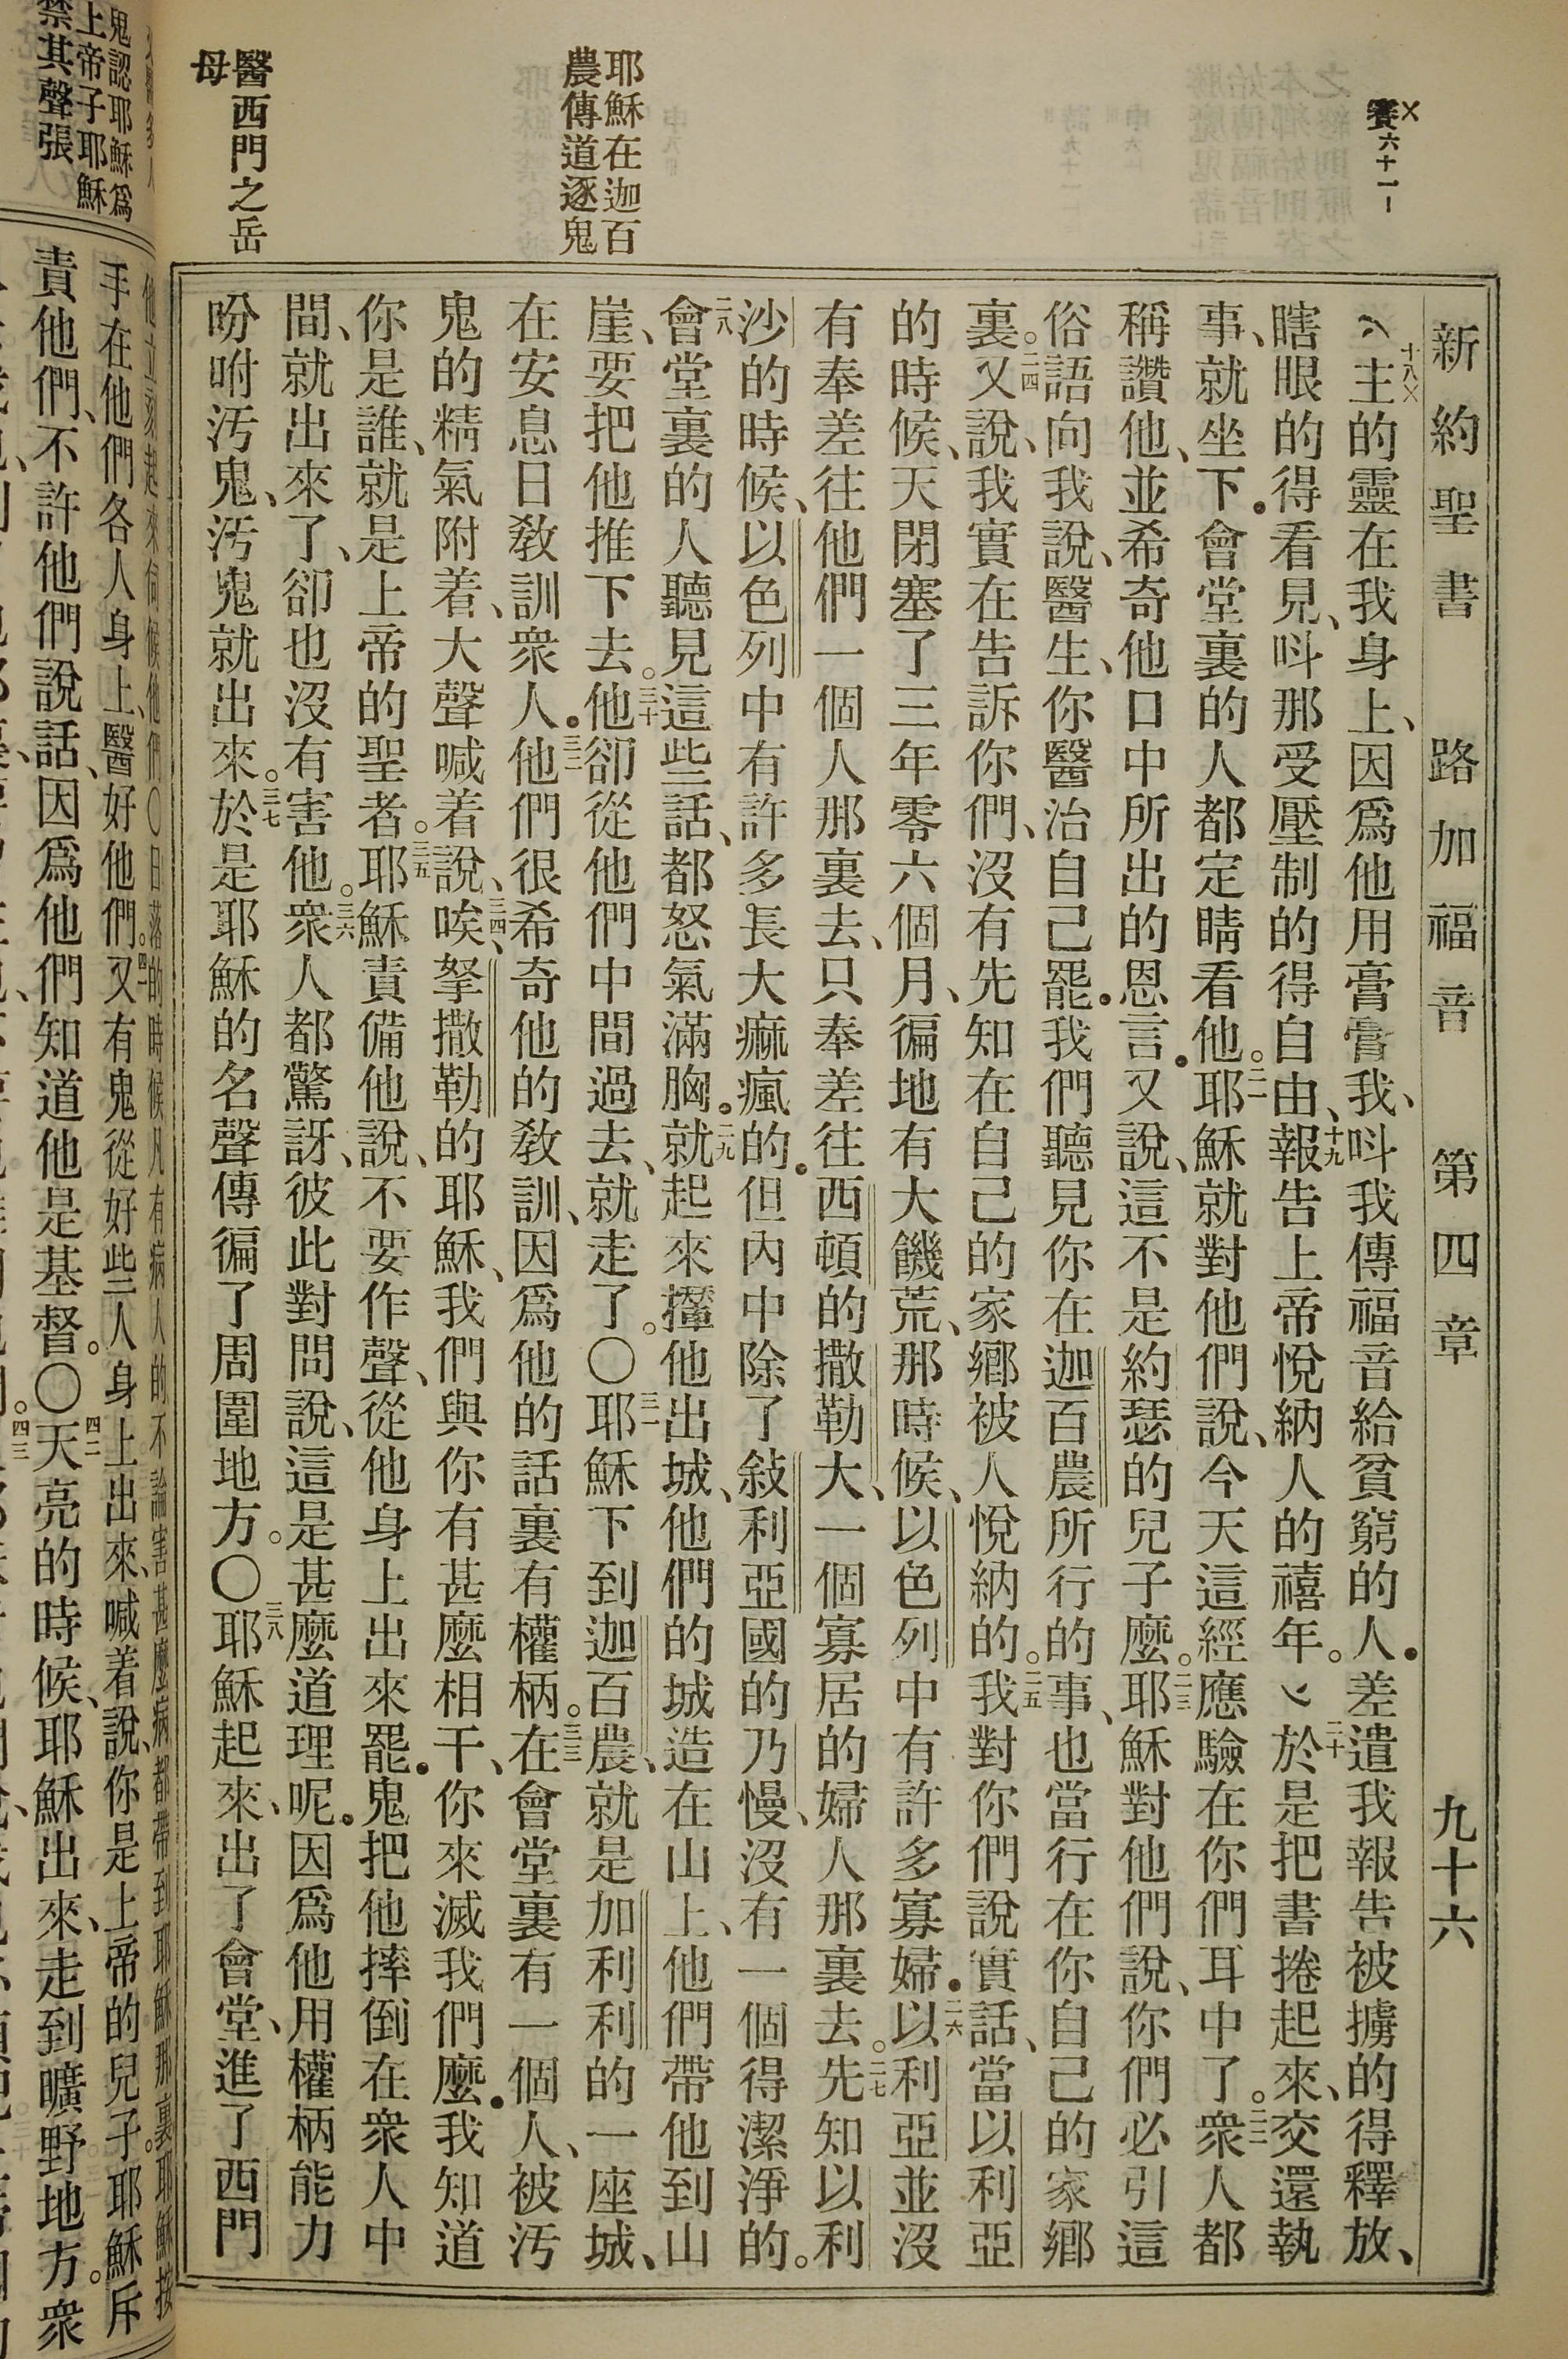 賽六十一1
耶穌在迦百
農傳道逐鬼
醫西門之岳
母
新約聖書 路加福音 第四章 九十六
十八主的靈在我身上、因爲他用膏膏我、呌我傳福音給貧窮的人．差遣我報告被擄的得釋放、
瞎眼的得看見、呌那受壓制的得自由、十九報告上帝悅納人的禧年。二十於是把書捲起來、交還執
事、就坐下．會堂裏的人都定睛看他。二一耶穌就對他們說、今天這經應驗在你們耳中了。二二衆人都
稱讚他、並希奇他口中所出的恩言．又說、這不是約瑟的兒子麼。二三耶穌對他們說、你們必引這
俗語向我說、醫生、你醫治自己罷．我們聽見你在迦百農所行的事、也當行在你自己的家鄉
裏。二四又說、我實在告訴你們、沒有先知在自己的家鄉被人悅納的。二五我對你們說實話、當以利亞
的時候、天閉塞了三年零六個月、徧地有大饑荒、那時候、以色列中有許多寡婦．二六以利亞並沒
有奉差往他們一個人那裏去、只奉差往西頓的撒勒大、一個寡居的婦人那裏去。二七先知以利
沙的時候、以色列中有許多長大痲瘋的．但內中除了敍利亞國的乃慢、沒有一個得潔淨的。
二八會堂裏的人聽見這些話、都怒氣滿胸．二九就起來攆他出城、他們的城造在山上、他們帶他到山
崖、要把他推下去。三十他卻從他們中間過去、就走了。〇三一耶穌下到迦百農、就是加利利的一座城、
在安息日敎訓衆人．三二他們很希奇他的敎訓、因爲他的話裏有權柄。三三在會堂裏有一個人、被汚
鬼的精氣附着、大聲喊着說、三四唉、拏撒勒的耶穌、我們與你有甚麼相干、你來滅我們麼．我知道
你是誰、就是上帝的聖者。三五耶穌責備他說、不要作聲、從他身上出來罷．鬼把他摔倒在衆人中
間、就出來了、卻也沒有害他。三六衆人都驚訝、彼此對問說、這是甚麼道理呢．因爲他用權柄能力
吩咐汚鬼、汚鬼就出來。三七於是耶穌的名聲傳徧了周圍地方。〇三八耶穌起來、出了會堂、進了西門
鬼認耶穌爲
上帝子耶穌
禁其聲張
他立刻起來伺候他們〇日落的時候凡有病人的不論害甚麼病都帶到耶穌那裏耶穌按
手在他們各人身上、醫好他們。四一又有鬼從好些人身上出來、喊着說、你是上帝的兒子。耶穌斥
責他們、不許他們說話、因爲他們知道他是基督。〇四二天亮的時候、耶穌出來、走到曠野地方。衆